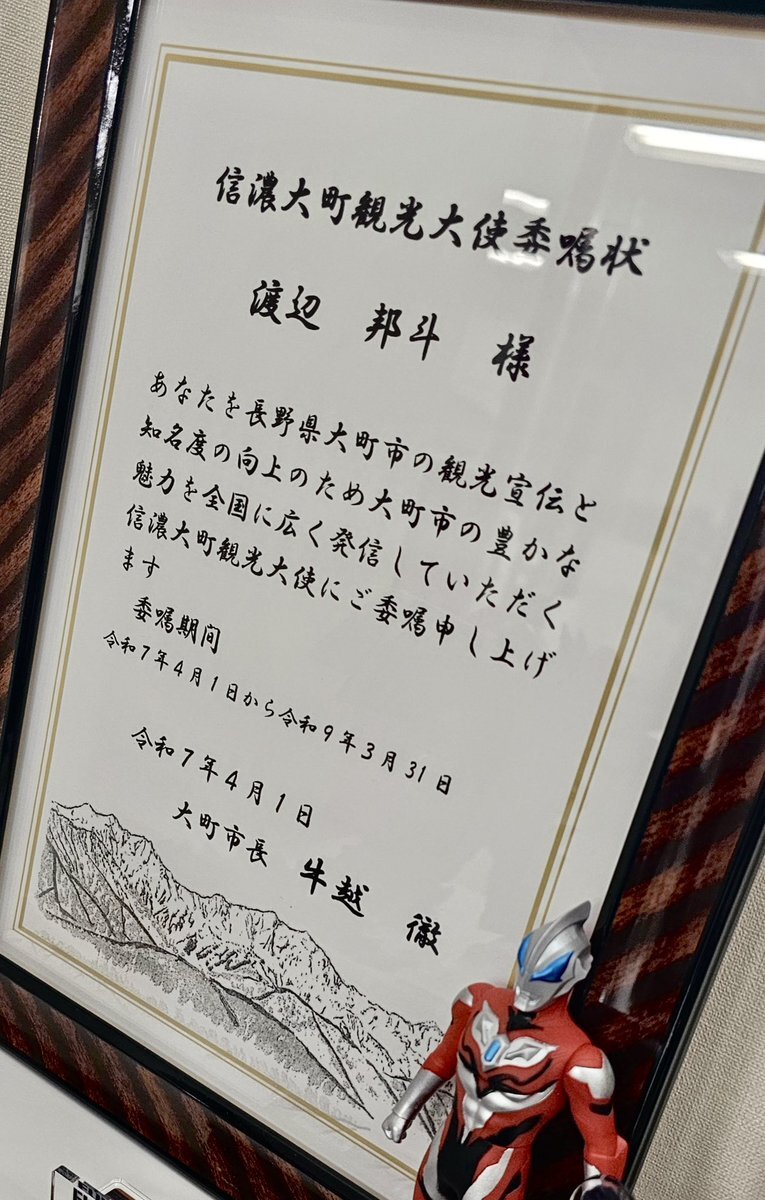 信濃大町観光大使委嘱状
渡辺　邦斗　様
あなたを長野県大町市の観光宣伝と
知名度の向上のため大町市の豊かな
魅力を全国に広く発信していただく
信濃大町観光大使にご委嘱申し上げ
ます
委嘱期間
令和7年4月1日から令和9年3月31日
令和7年4月1日
大町市長　牛越　徹